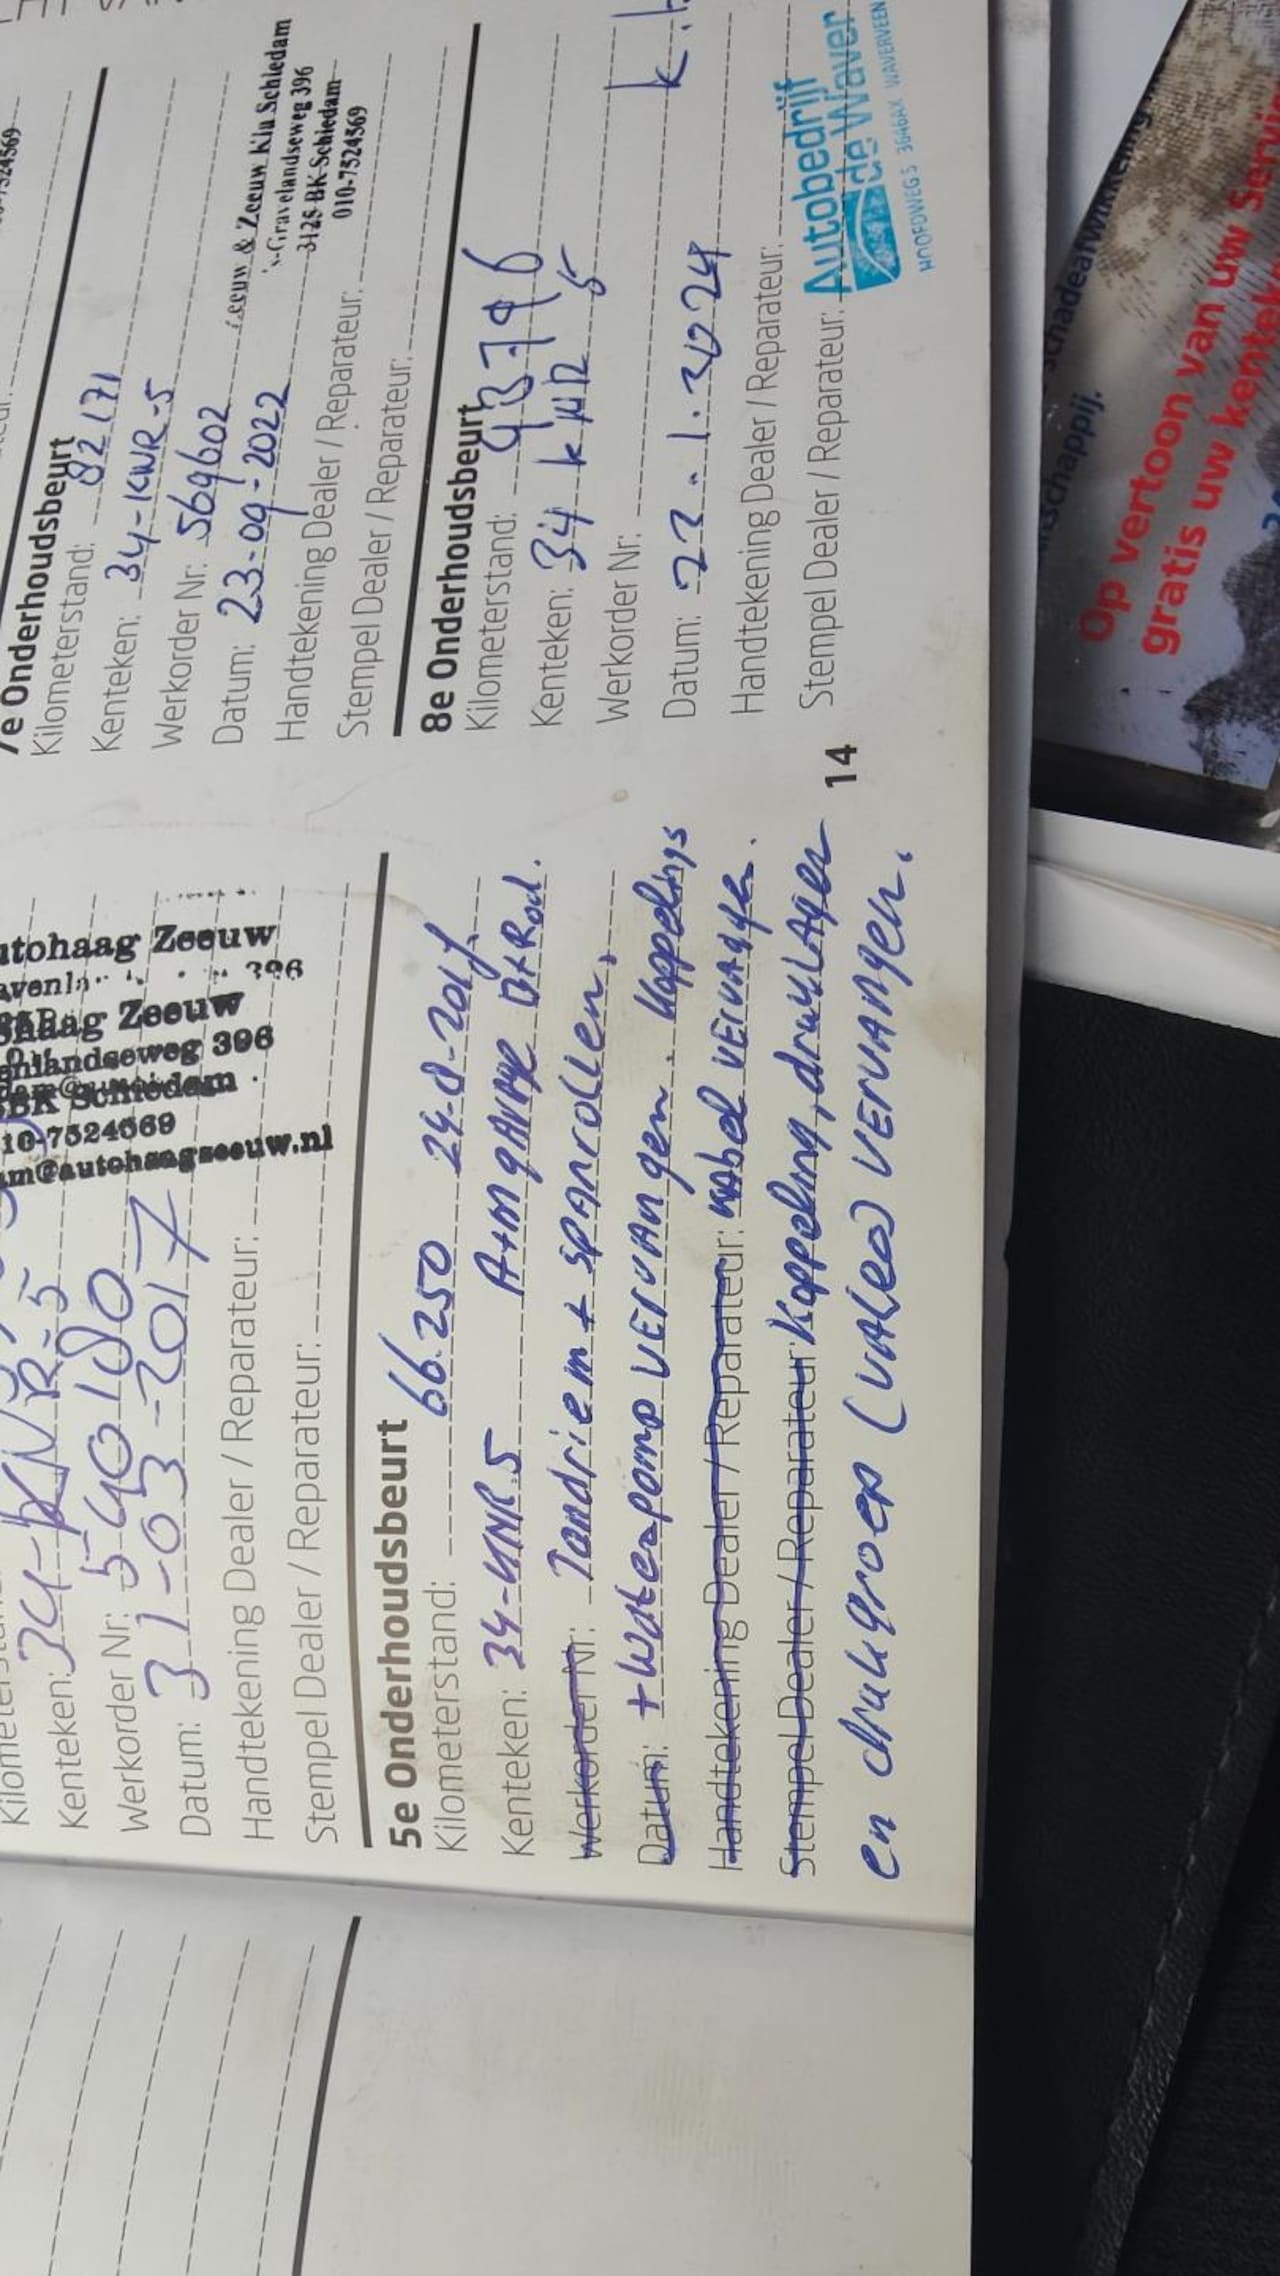 Kenteken: 34-KNR-5
Werkorder Nr: 540180
Datum: 31-03-2017
Handtekening Dealer / Reparateur:
Stempel Dealer / Reparateur:
utohaag Zeeuw
396
haag Zeeuw
nlandseweg 396
BK Schiedam
10-7524569
m@autohaagzeeuw.nl
5e Onderhoudsbeurt
Kilometerstand: 66.250
Kenteken: 34-KNR.5
Werkorder Nr: Tandriem + spanrollen,
Datum: + Waterpomp vervangen. Koppelings
Handtekening Dealer / Reparateur: kabel vervangen.
Stempel Dealer / Reparateur: Koppeling, druklager
en drukgroep (valeo) vervangen.
7e Onderhoudsbeurt
Kilometerstand: 82171
Kenteken: 34-KNR-5
Werkorder Nr: 569602
Datum: 23-09-2022
Handtekening Dealer / Reparateur:
Stempel Dealer / Reparateur:
Zeeuw & Zeeuw Kia Schiedam
's-Gravelandseweg 396
3125 BK Schiedam
010-7524569
8e Onderhoudsbeurt
Kilometerstand: 93796
Kenteken: 34 KNR 5
Werkorder Nr:
Datum: 23.1.2024
Handtekening Dealer / Reparateur:
Stempel Dealer / Reparateur:
Autobedrijf
de Waver
HOOFDWEG 5 3646AX WAVERVEEN
14
schadeafwikkeling
schappij.
Op vertoon van uw Servi
gratis uw kentek